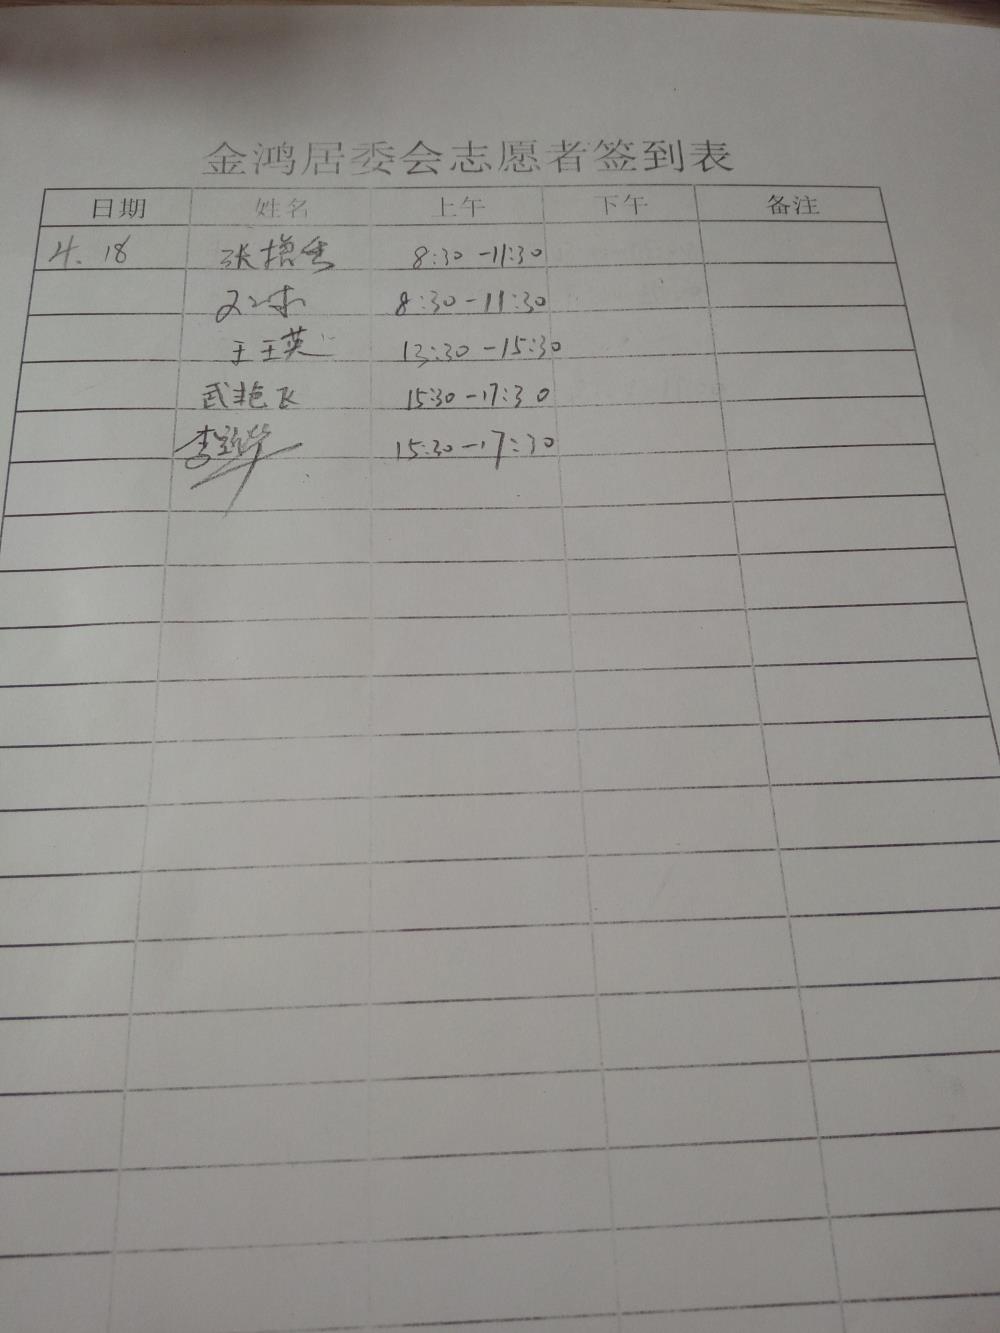 金鸿居委会志愿者签到表
日期 姓名 上午 下午 备注
4.18 张增秀 8:30-11:30
8:30-11:30
于王英 13:30-15:30
武艳飞 15:30-17:30
李 华 15:30-17:30